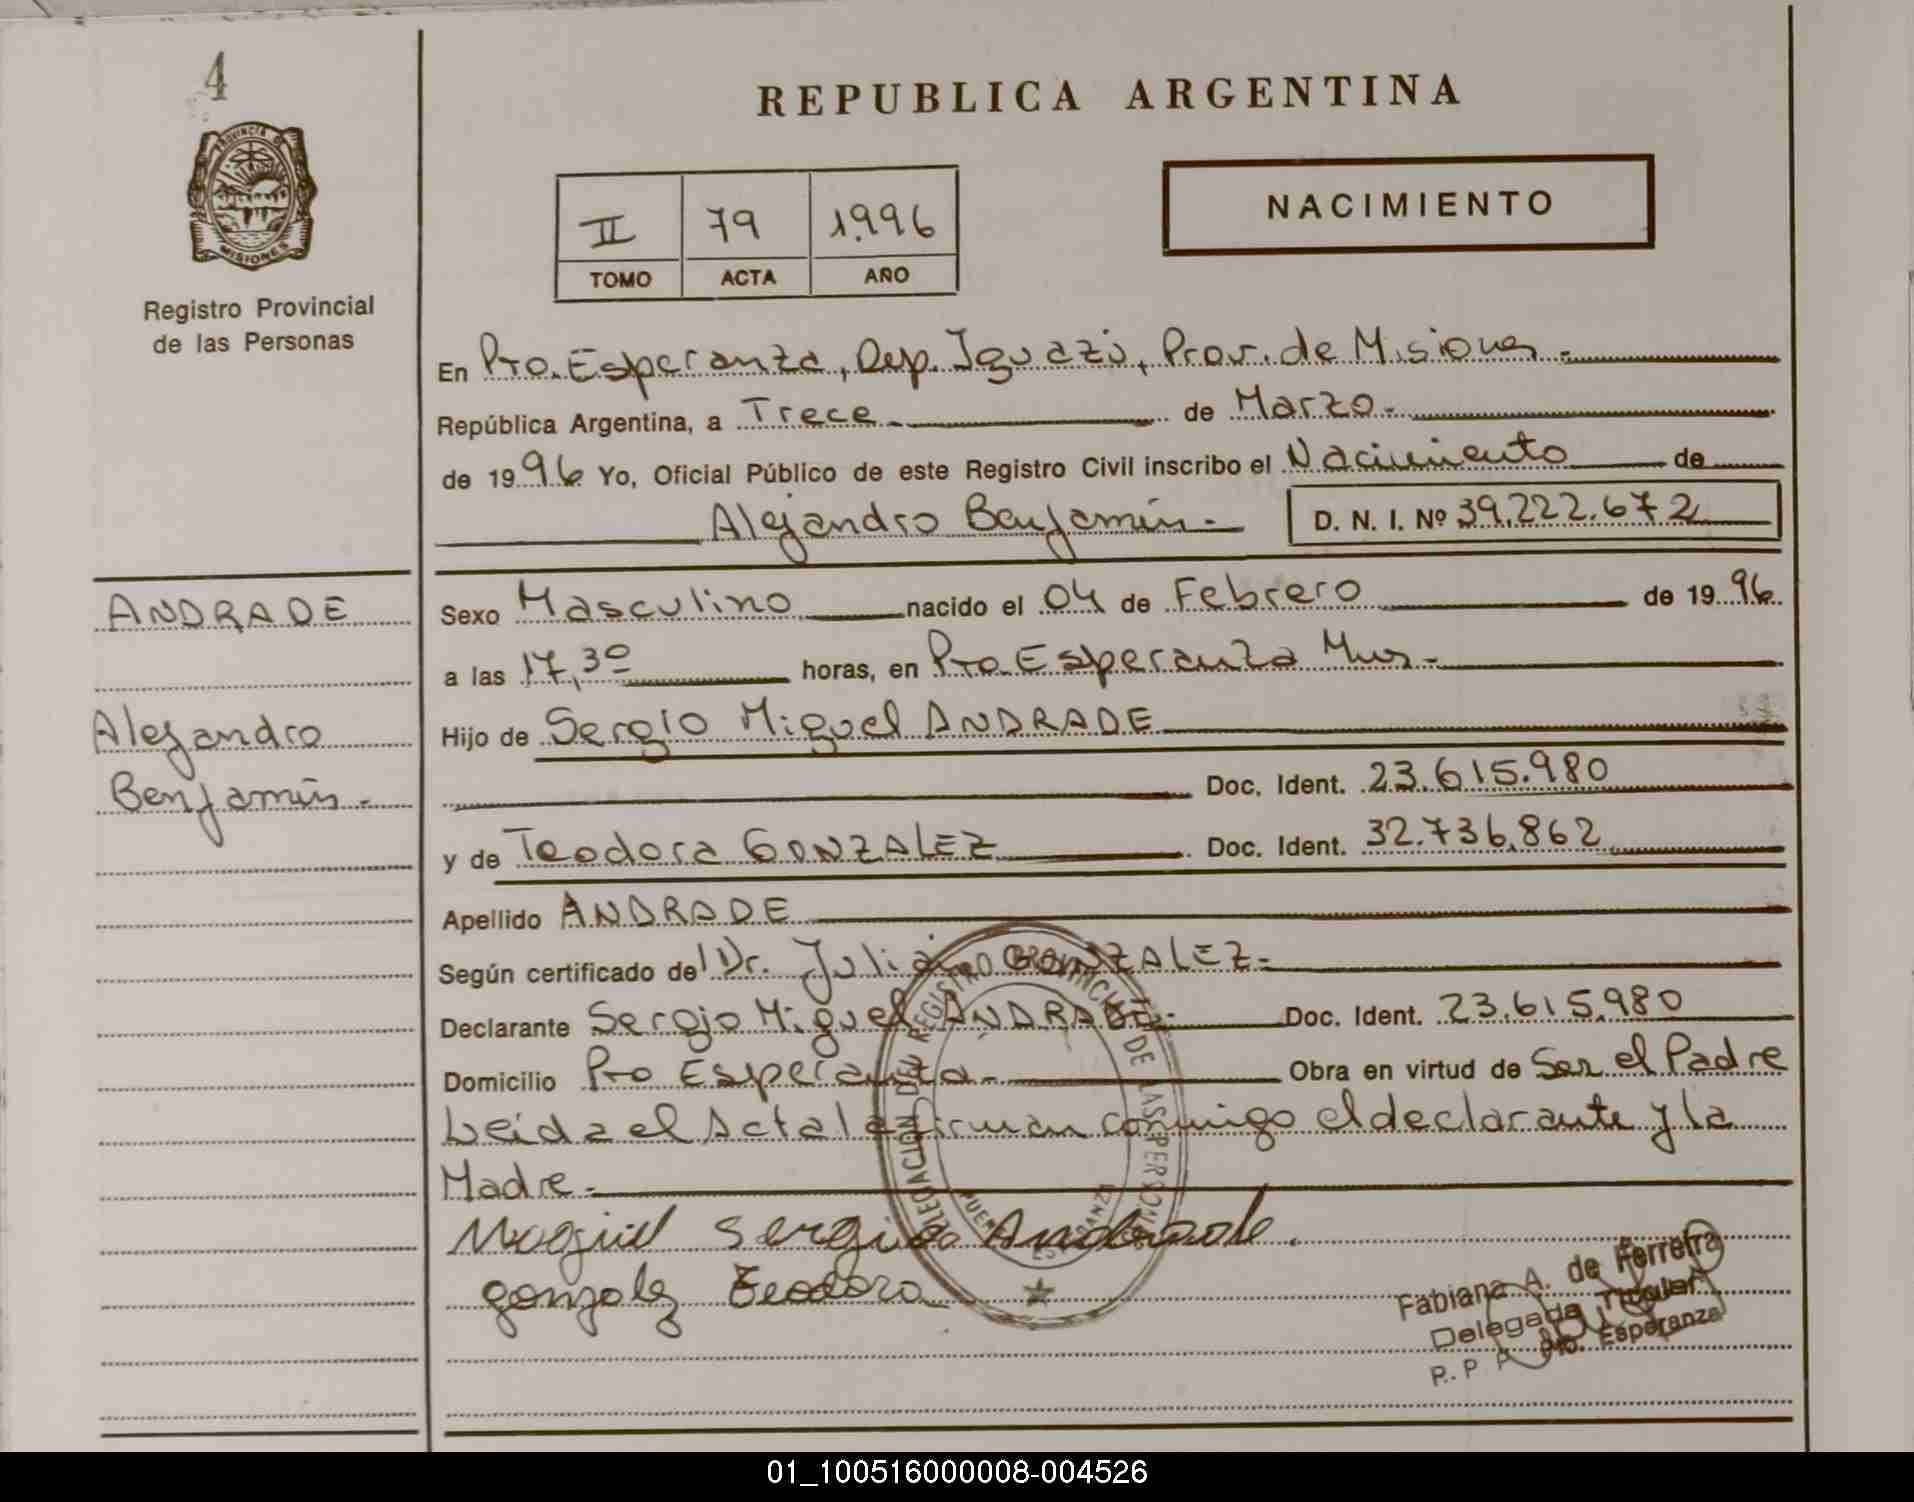 4
PROVINCIA DE
MISIONES
Registro Provincial
de las Personas
REPUBLICA ARGENTINA
II 79 1.996
TOMO ACTA AÑO
NACIMIENTO
En Pto. Esperanza, Dep. Iguazú, Prov. de Misiones.-
República Argentina, a Trece.- de Marzo.-
de 1996 Yo, Oficial Público de este Registro Civil inscribo el Nacimiento de
Alejandro Benjamín.- D. N. I. Nº 39.222.672
ANDRADE
Alejandro
Benjamín.-
Sexo Masculino nacido el 04 de Febrero de 1996
a las 17,30 horas, en Pto Esperanza Mns.-
Hijo de Sergio Miguel ANDRADE
Doc. Ident. 23.615.980
y de Teodora GONZALEZ Doc. Ident. 32.736.862
Apellido ANDRADE
Según certificado de Dr. Julián GONZALEZ.-
Declarante Sergio Miguel ANDRADE.- Doc. Ident. 23.615.980
Domicilio Pto Esperanza.- Obra en virtud de Ser el Padre
Leída el Acta la firman conmigo el declarante y la
Madre.-
DELEGACION DEL REGISTRO PROVINCIAL DE LAS PERSONAS
PUERTO ESPERANZA
Miguel Sergio Andrade.
gonzalez Teodora
Fabiana A. de Ferreira
Delegada Titular
R. P. P. Pto. Esperanza
01_100516000008-004526